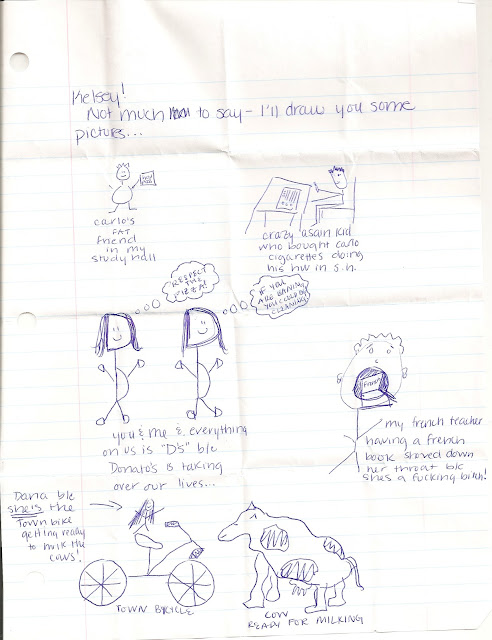 Kelsey!
Not much to say - I'll draw you some
pictures...
carlo's
FAT
friend
in my
study hall
crazy asain kid
who bought carlo
cigarettes doing
his hw in s.h.
RESPECT
THE
PIZZA!
IF YOU
ARE
YOU COULD BE
CLEANING
you & me & everything
on us is "D's" b/c
Donato's is taking
over our lives...
French
my french teacher
having a french
book shoved down
her throat b/c
she's a fucking bitch!
Dana b/c
she is the
Town bike
getting ready
to milk the
cows!
TOWN BICYCLE
COW
READY FOR MILKING